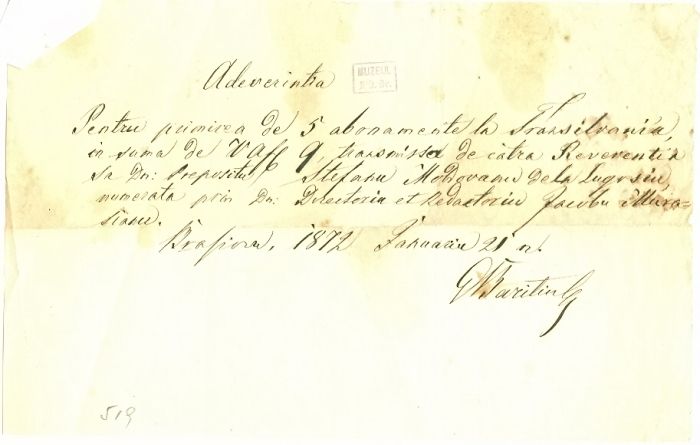 Adeverintia
MUZEUL
Pentru primirea de 5 abonamente la Transilvania,
in suma de V. A. fl 9, transmissa de catra Reverenti'a
Sa Dn: Prepositu Stefanu Moldovanu de la Lugosiu,
numerata prin Dn: Directoriu et Redactoriu Jacobu Mura-
sianu.
Brasiovu, 1872 Januariu 21 n.
G Baritiu
519